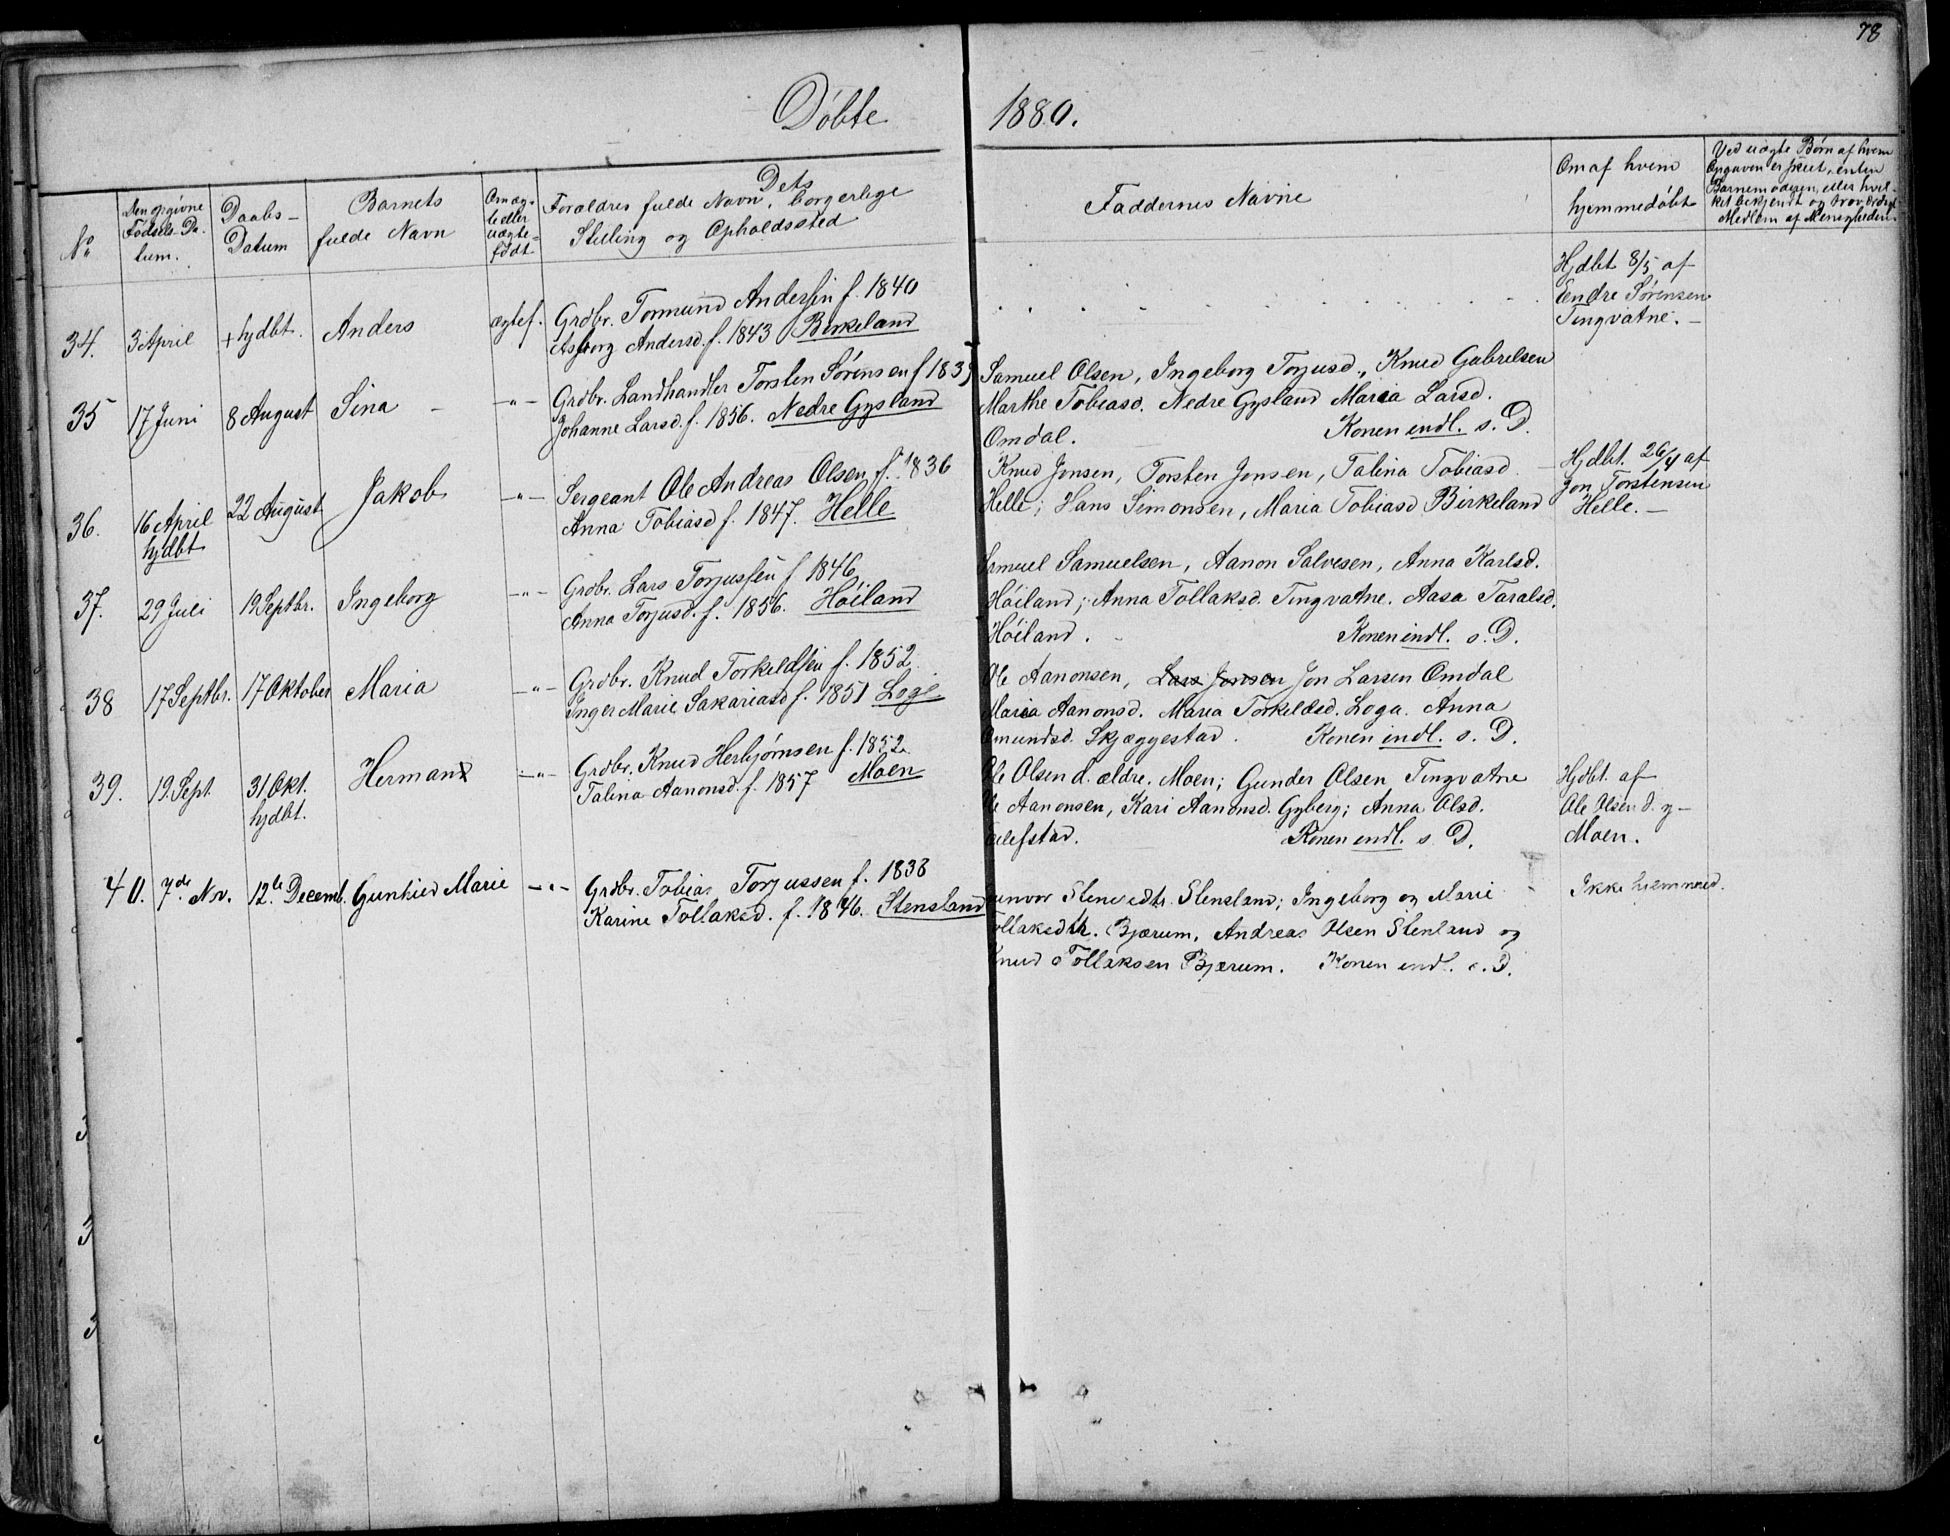 78
Döbte 1880.
No
Den opgivne Födsels-Datum.
Daabs-Datum
Barnets fulde Navn
Om ægte eller uægte-född.
Dets Forældres fulde Navn, borgerlige Stilling og Opholdssted
Faddernes Navne
Om af hvem hjemmedöbt
Ved uægte Börn af hvem Opgaven er skeet, enten Barnemoderen, eller hvilket bekjendt og troværdigt Medlem af Menigheden
34. 3 April + hjdbt. Anders ægtef. Grdbr. Tormund Anderssen f. 1840
Asborg Andersd. f. 1843 Birkeland
Hjdbt 8/5 af
Eendre Sörensen
Tingvatne. –
35 17 Juni 8 August Sina – –"– Grdbr. Landhandler Torsten Sörensen f 183
Johanne Larsd. f. 1856. Nedre Gysland
Samuel Olsen, Ingeborg Torjusd., Knud Gabrelsen
Marthe Tobiasd. Nedre Gysland Maria Larsd.
Omdal. Konen indl. s. D.
36. 16 April hjdbt 22 August Jakob –"– Sergeant Ole Andreas Olsen f. 1836
Anna Tobiasd f. 1847. Helle
Knud Jonsen, Torsten Jonsen, Talina Tobiasd
Helle; Hans Simonsen, Maria Tobiasd Birkeland
Hjdbt. 26/4 af
Jon Torstensen
Helle. –
37. 29 Juli 19 Septbr. Ingeborg –"– Grdbr. Lars Torjussen f 1846
Anna Torjusd. f. 1856. Höiland
Samuel Samuelsen, Aanon Salvesen, Anna Karlsd.
Höiland; Anna Tollaksd. Tingvatne. Aasa Taralsd.
Höiland. Konen indl. s. D.
38 17 Septbr. 17 Oktober Maria –"– Grdbr. Knud Torkeldsen f. 1852
Inger Marie Sakariasd f. 1851 Loge
Ole Aanonsen, Lars Jonsen Jon Larsen Omdal
Maria Aanonsd. Maria Torkeldsd. Loga. Anna
Omundsd. Skjæggestad. Konen indl. s. D.
39. 19. Sept. 31 Okt. hjdbt. Herman –"– Grdbr. Knud Herbjörnsen f. 1852
Talina Aanonsd. f. 1857 Moen
Ole Olsen d. ældre. Moen; Gunder Olsen Tingvatne
Ole Aanonsen, Kari Aanonsd. Gyberg; Anna Olsd.
Konen indl. s D.
Hjdbt. af
Ole Olsen d. y –
Moen.
40. 7de Nov. 12te Decemb. Gunhild Marie –"– Grdbr. Tobias Torjussen f. 1838
Karine Tollaksd. f. 1846. Stensland
Gunvor Stensland; Ingeborg og Marie
Tollaksdtr. Bjærum, Andreas Olsen Stenland og
Knud Tollaksen Bjærum. Konen indl. s. D.
Ikke hjemmed.